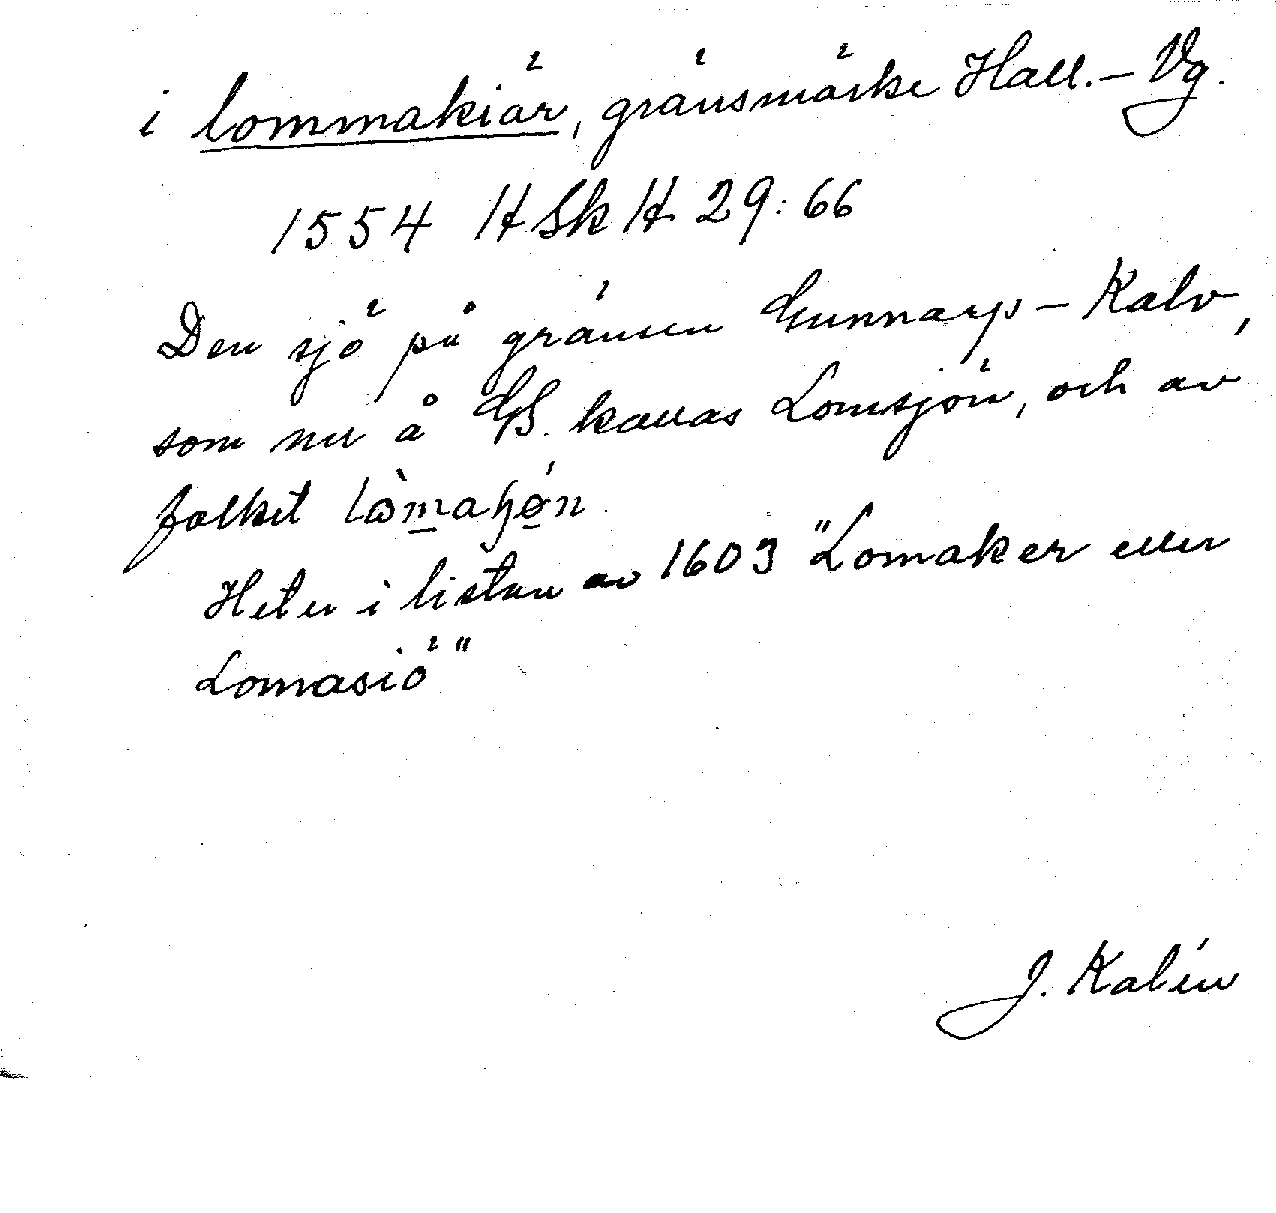 i lommakiär, gränsmärke Hall. – Vg.
1554 HSkH 29:66
Den sjö på gränsen Gunnarp – Kalv,
som nu å GS. kallas Lomsjön, och av
folket
Heter i listan av 1603 "Lomaker eller
Lomasiö"
J. Kalén